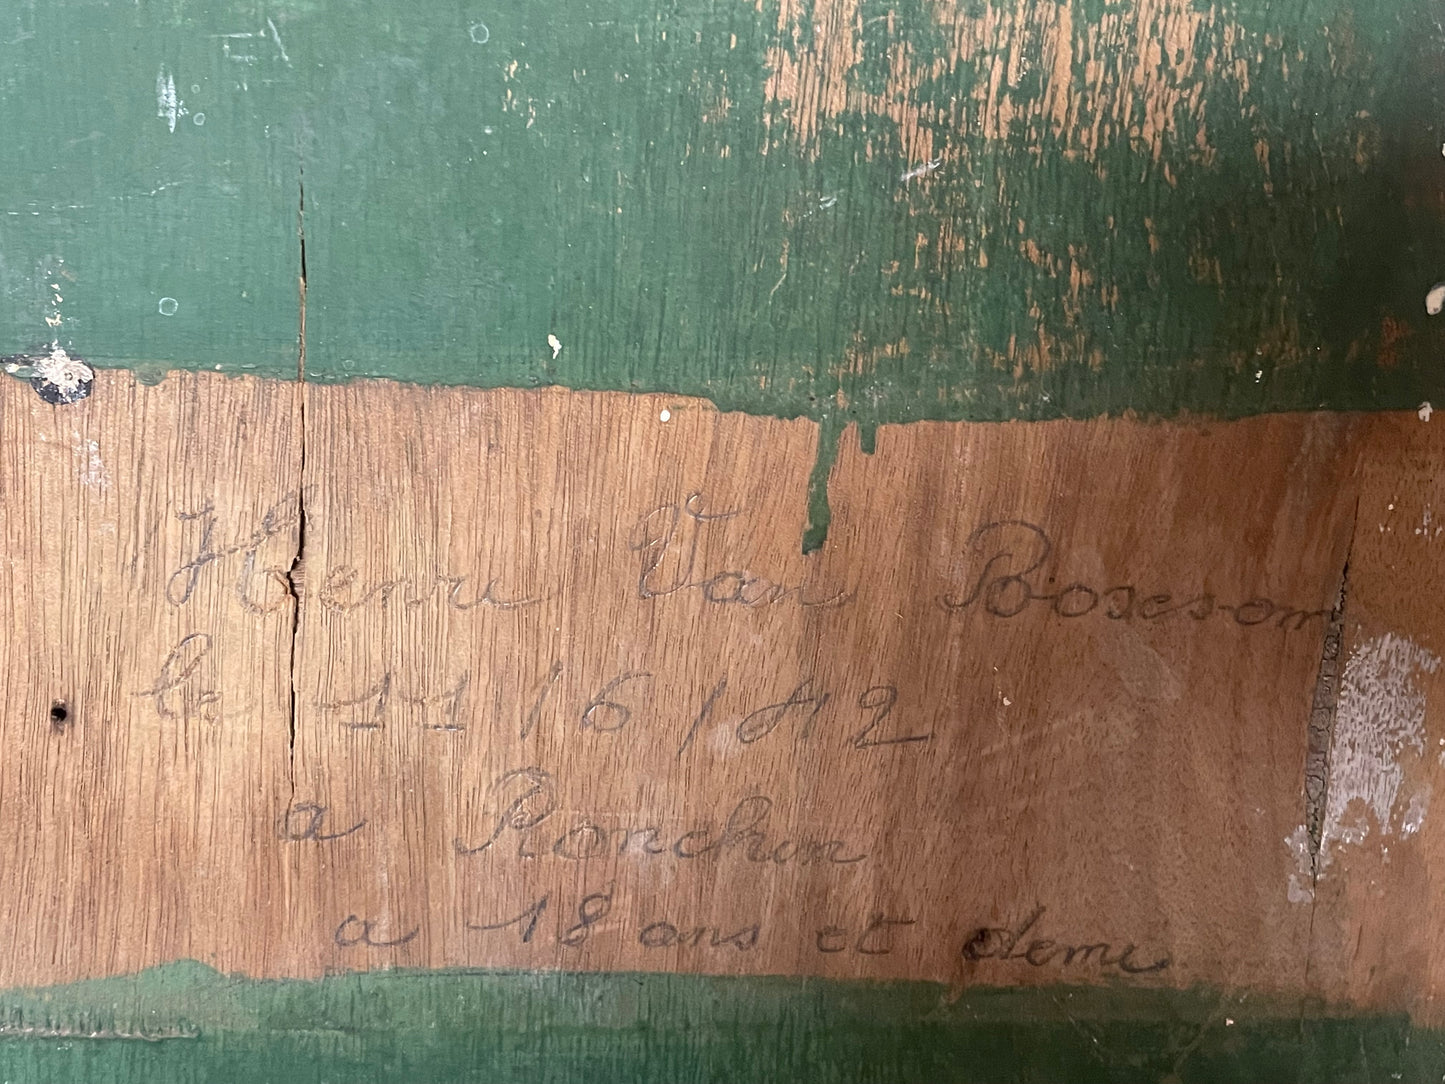 Henri Van
le 11/6/42
a Ronchin
a 18 ans et demi